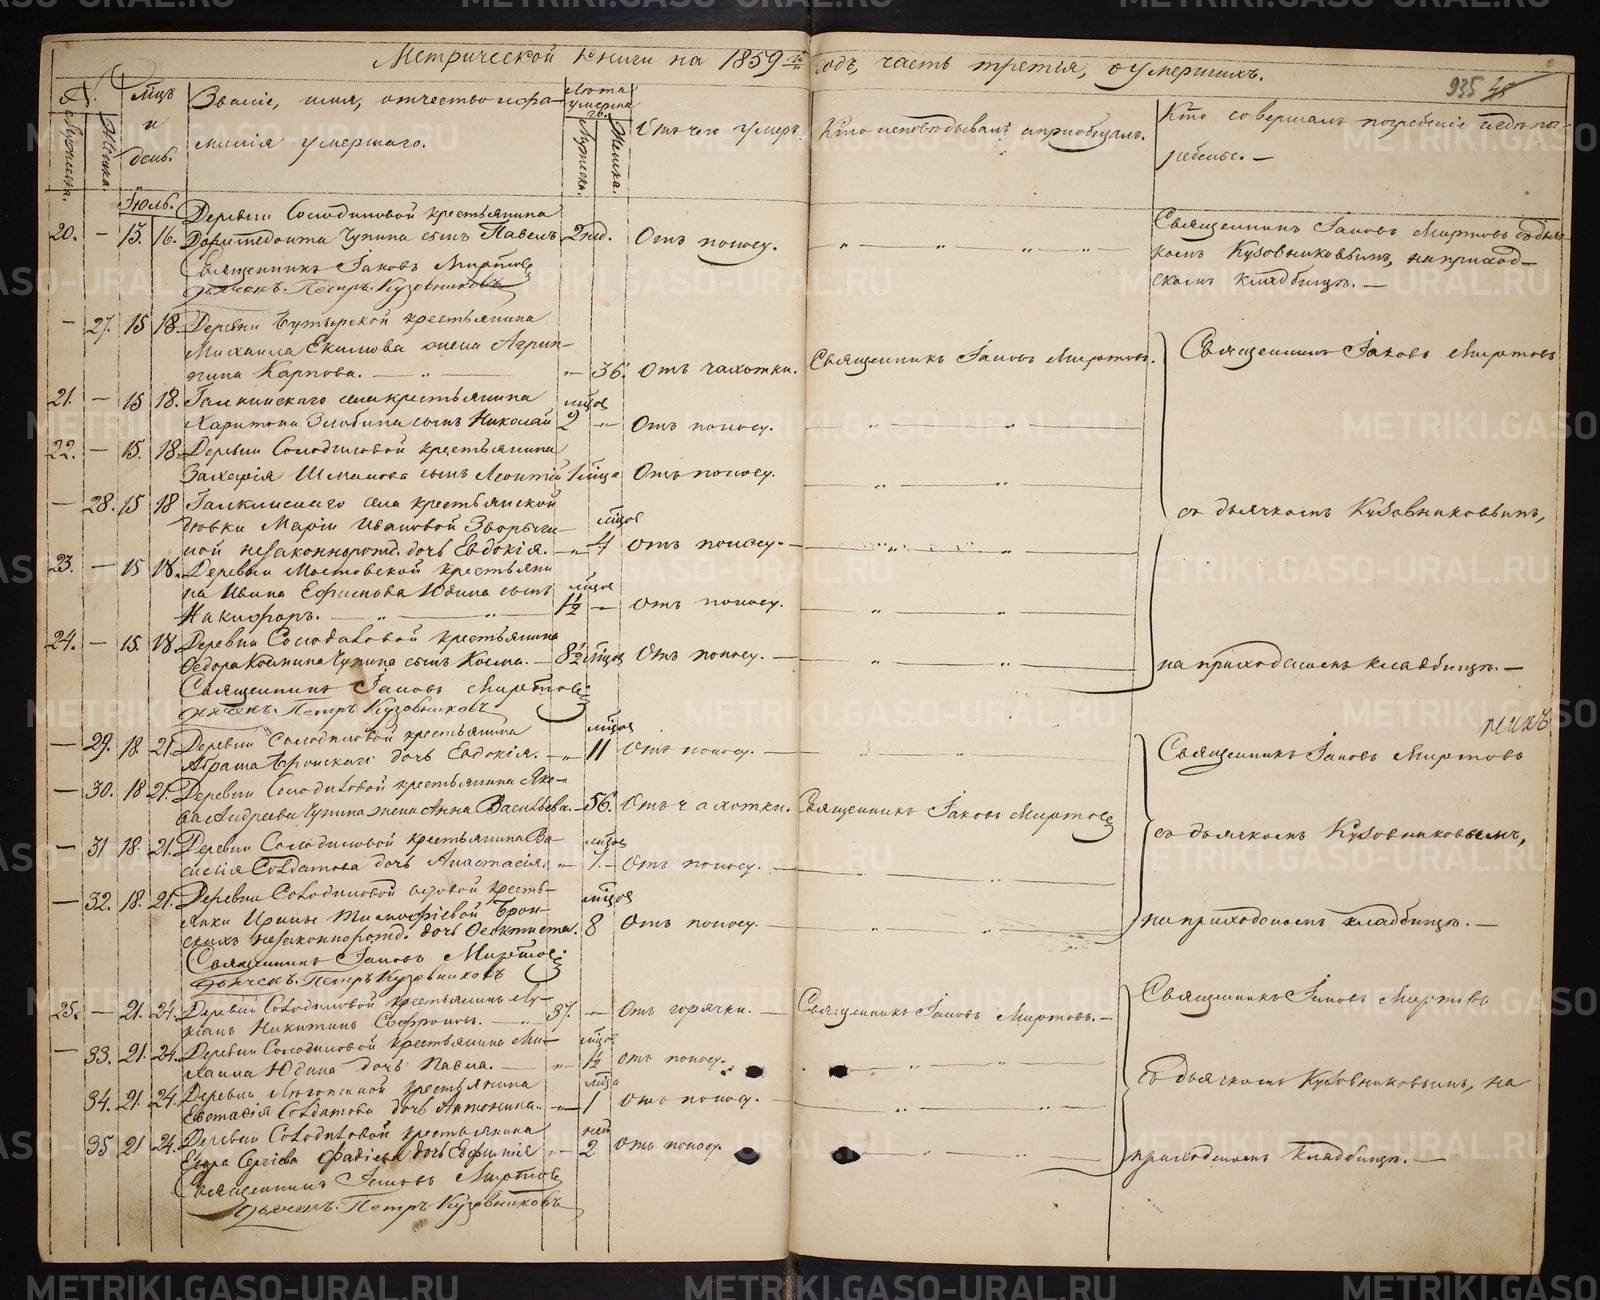 Метрической книги на 1859й годъ, часть третія, о умершихъ.
935
№.
Мужеска.
Женска.
Мцъ и день.
Званіе, имя, отчество и фа-
милія умершаго.
Лѣта умерша
го.
Мужеска.
Женска.
Отъ чего умеръ.
Кто исповѣдывалъ и пріобщалъ.
Кто совершалъ погребеніе и гдѣ пог-
ребены. —
Іюль.
Деревни Солодиловой крестьянина
20. — 13. 16. Доримедонта Чупина сынъ Павелъ 2 нед. Отъ поносу.
Священникъ Іаковъ Миртовъ съ дьяч-
комъ Кузовниковымъ, на приход-
скомъ кладбищѣ. —
Священникъ Іаковъ Миртовъ
дьячекъ Петръ Кузовниковъ
— 27. 15 18. Деревни Бутырской крестьянина
Михаила Екимова жена Агрип-
пина Карпова. — 36. Отъ чахотки. Священникъ Іаковъ Миртовъ.
Священникъ Іаковъ Миртовъ
21. — 15 18. Галкинскаго села крестьянина
мцов
Харитона Злобина сынъ Николай 2 — Отъ поносу.
22. — 15. 18. Деревни Солодиловой крестьянина
Захарія сынъ Леонтій 1 мца Отъ поносу.
— 28. 15 18 Галкинскаго села крестьянской
дѣвки Маріи Ивановой Зворыги-
мцов
ной незаконнорожд. дочь Евдокія. — 4 Отъ поносу. —
съ дьячкомъ Кузовниковымъ,
23. — 15 18. Деревни Мостовской крестьяни
на Ивана Ефимова Юдина сынъ мцов
Никифоръ. — 1½ — Отъ поносу.
24. — 15. 18. Деревни Солодиловой крестьянина
Федора Космина Чупина сынъ Косма. — 8½ мцов Отъ поносу. —
на приходскомъ кладбищѣ. —
Священникъ Іаковъ Миртовъ
дьячекъ Петръ Кузовниковъ
— 29. 18. 21. Деревни Солодиловой крестьянина
мцов
Абрама Бронскаго дочь Евдокія. — 11 Отъ поносу. —
Священникъ Іаковъ Миртовъ
— 30. 18 21. Деревни Солодиловой крестьянина Яко-
ва Андреева Чупина жена Анна Васильева. — 56. Отъ чахотки. Священникъ Іаковъ Миртовъ
— 31 18. 21. Деревни Солодиловой крестьянина Ва-
мцов
силія Солдатова дочь Анастасія. — 1. — Отъ поносу. —
съ дьячкомъ Кузовниковымъ,
— 32. 18. 21. Деревни Солодиловой вдовой кресть-
янки Ирины Тимофіевой Брон-
мцов
скихъ незаконнорожд. дочь Феоктиста. 8 Отъ поносу. —
на приходскомъ кладбищѣ. —
Священникъ Іаковъ Миртовъ
дьячекъ Петръ Кузовниковъ
25. — 21. 24. Деревни Солодиловой крестьянинъ Лу-
кіанъ Никитинъ Софроновъ. — 37. — Отъ горячки. — Священникъ Іаковъ Миртовъ. —
Священникъ Іаковъ Миртовъ
— 33. 21. 24. Деревни Солодиловой крестьянина Ми-
мцов
хаила Юдина дочь Павла. — 1½ Отъ поносу.
съ дьячкомъ Кузовниковымъ, на
34. 21. 24. Деревни крестьянина
мца
Евстафія Солдатова дочь Антонина. — 1 Отъ поносу. —
35 21 24. Деревни Солодиловой крестьянина
нед
Егора Сергіева Фадіева дочь Евфимія — 2 Отъ поносу.
приходскомъ кладбищѣ. —
Священникъ Іаковъ Миртовъ
дьячекъ Петръ Кузовниковъ
METRIKI.GASO-URAL.RU